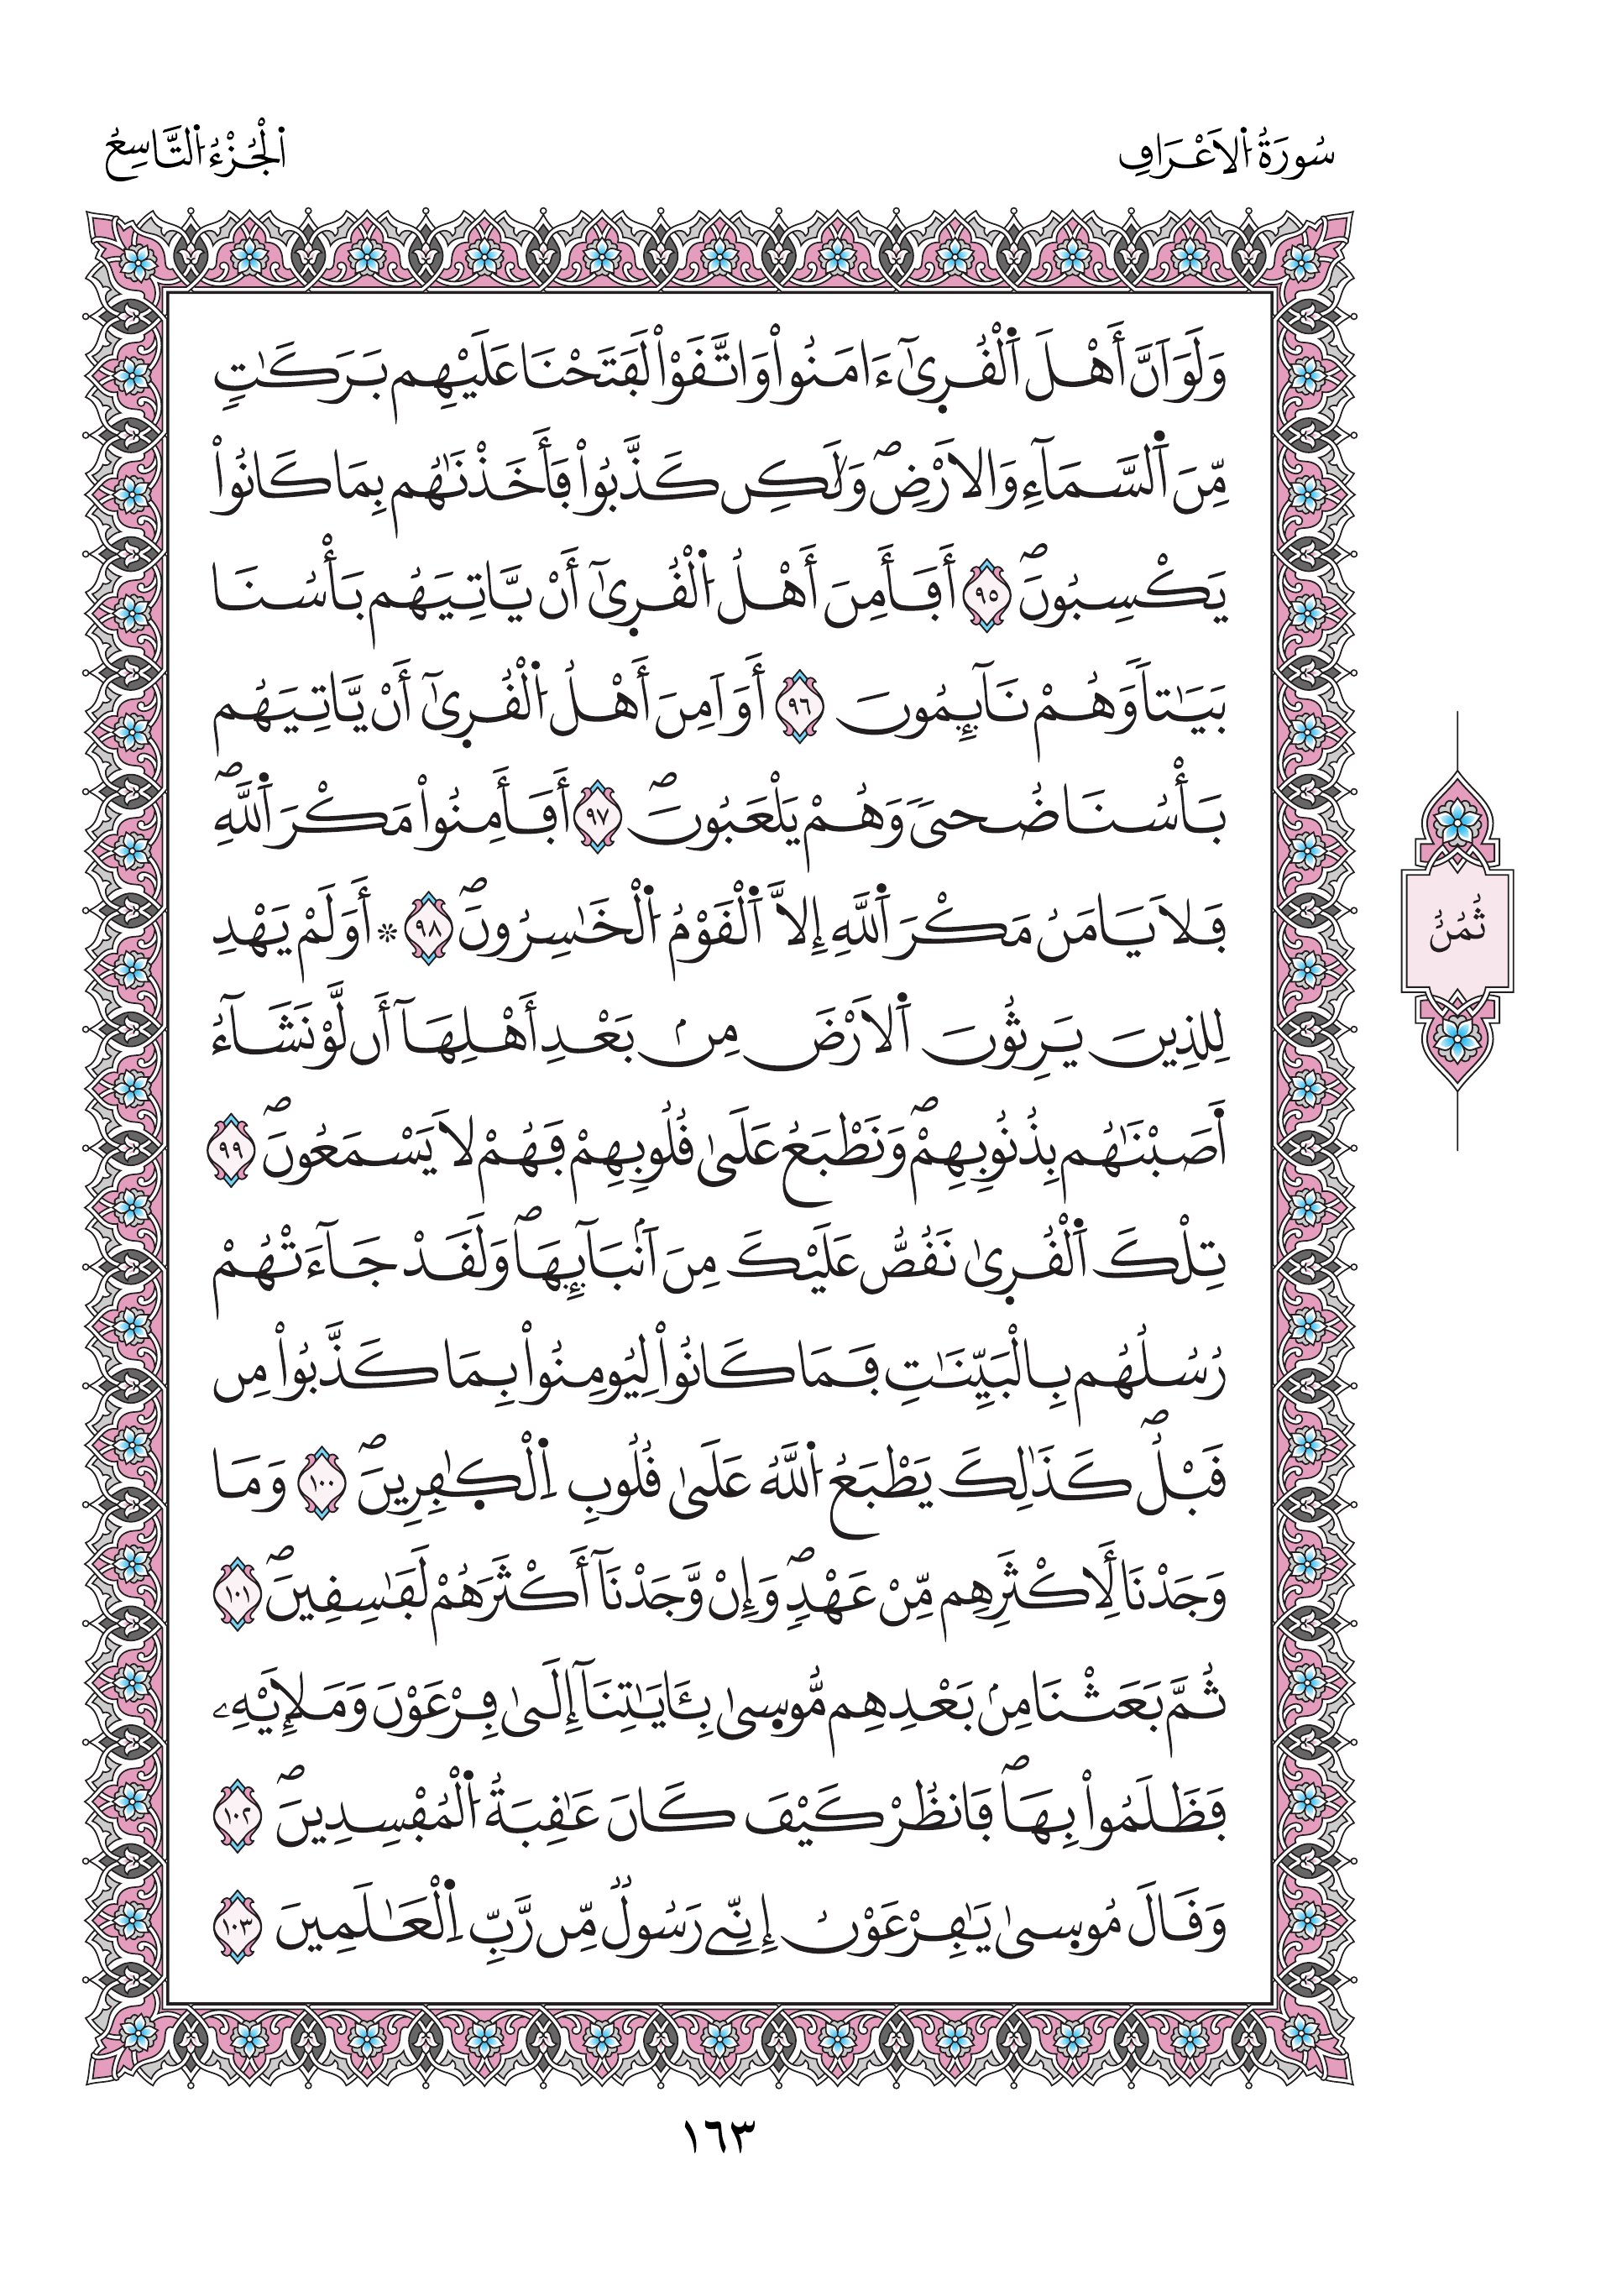 سُورَةُ اُ۬لَاعْرَافِ
اُ۬لْجُزْءُ اُ۬لتَّاسِعُ
وَلَوَ اَنَّ أَهْلَ اَ۬لْقُر۪ىٰٓ ءَامَنُواْ وَاتَّقَوْاْ لَفَتَحْنَا عَلَيْهِم بَرَكَٰتٖ
مِّنَ اَ۬لسَّمَآءِ وَالَارْضِۖ وَلَٰكِن كَذَّبُواْ فَأَخَذْنَٰهُم بِمَا كَانُواْ
يَكْسِبُونَۖ ٩٥ أَفَأَمِنَ أَهْلُ اُ۬لْقُر۪ىٰٓ أَنْ يَّاتِيَهُم بَأْسُنَا
بَيَٰتاٗ وَهُمْ نَآئِمُونَ ٩٦ أَوَ اَمِنَ أَهْلُ اُ۬لْقُر۪ىٰٓ أَنْ يَّاتِيَهُم
بَأْسُنَا ضُحىٗ وَهُمْ يَلْعَبُونَۖ ٩٧ أَفَأَمِنُواْ مَكْرَ اَ۬للَّهِۖ
فَلَا يَامَنُ مَكْرَ اَ۬للَّهِ إِلَّا اَ۬لْقَوْمُ اُ۬لْخَٰسِرُونَۖ ٩٨ * أَوَلَمْ يَهْدِ
لِلذِينَ يَرِثُونَ اَ۬لَارْضَ مِنۢ بَعْدِ أَهْلِهَآ أَن لَّوْ نَشَآءُ
أَصَبْنَٰهُم بِذُنُوبِهِمْۖ وَنَطْبَعُ عَلَىٰ قُلُوبِهِمْ فَهُمْ لَا يَسْمَعُونَۖ ٩٩
تِلْكَ اَ۬لْقُر۪ىٰ نَقُصُّ عَلَيْكَ مِنَ اَنۢبَآئِهَاۖ وَلَقَدْ جَآءَتْهُمْ
رُسُلُهُم بِالْبَيِّنَٰتِ فَمَا كَانُواْ لِيُومِنُواْ بِمَا كَذَّبُواْ مِن
قَبْلُۖ كَذَٰلِكَ يَطْبَعُ اُ۬للَّهُ عَلَىٰ قُلُوبِ اِ۬لْكٰ۪فِرِينَۖ ١٠٠ وَمَا
وَجَدْنَا لِأَكْثَرِهِم مِّنْ عَهْدٖۖ وَإِنْ وَّجَدْنَآ أَكْثَرَهُمْ لَفَٰسِقِينَۖ ١٠١
ثُمَّ بَعَثْنَا مِنۢ بَعْدِهِم مُّوس۪ىٰ بِـَٔايَٰتِنَآ إِلَىٰ فِرْعَوْنَ وَمَلَإِيْهِۦ
فَظَلَمُواْ بِهَاۖ فَانظُرْ كَيْفَ كَانَ عَٰقِبَةُ اُ۬لْمُفْسِدِينَۖ ١٠٢
وَقَالَ مُوس۪ىٰ يَٰفِرْعَوْنُ إِنِّے رَسُولٞ مِّن رَّبِّ اِ۬لْعَٰلَمِينَ ١٠٣
ثُمُنُ
١٦٣